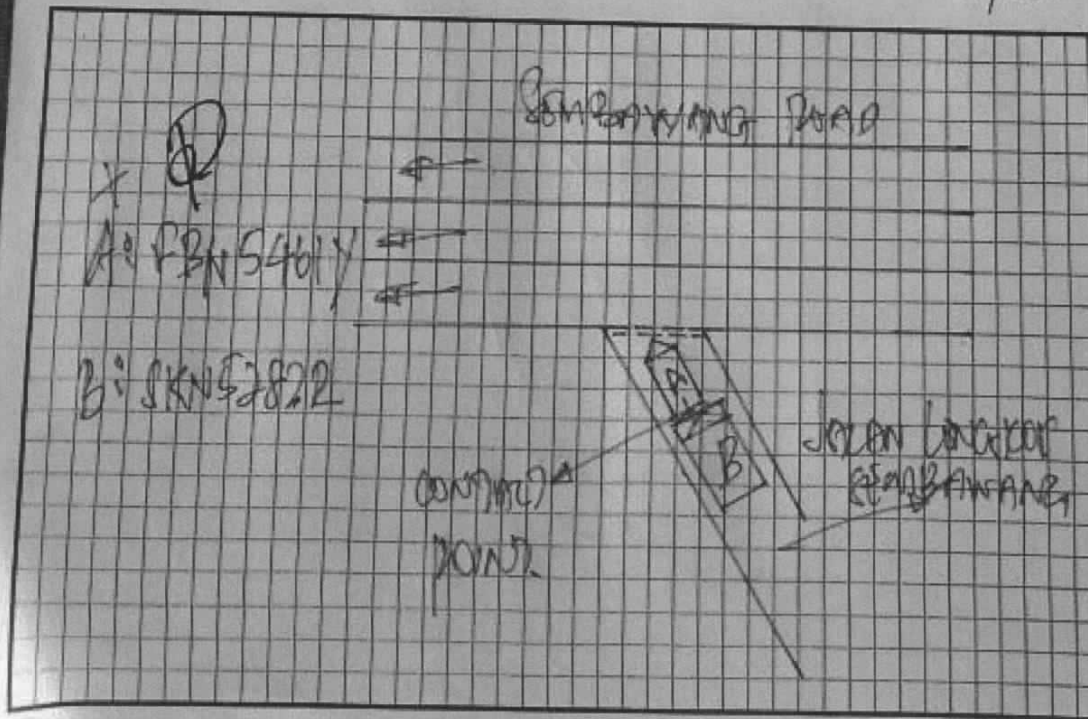 SEMBAWANG ROAD
X
A: FBN5461Y
B: SKN5282R
A
B
CONTACT
POINT
JALAN LENGKOK
SEMBAWANG